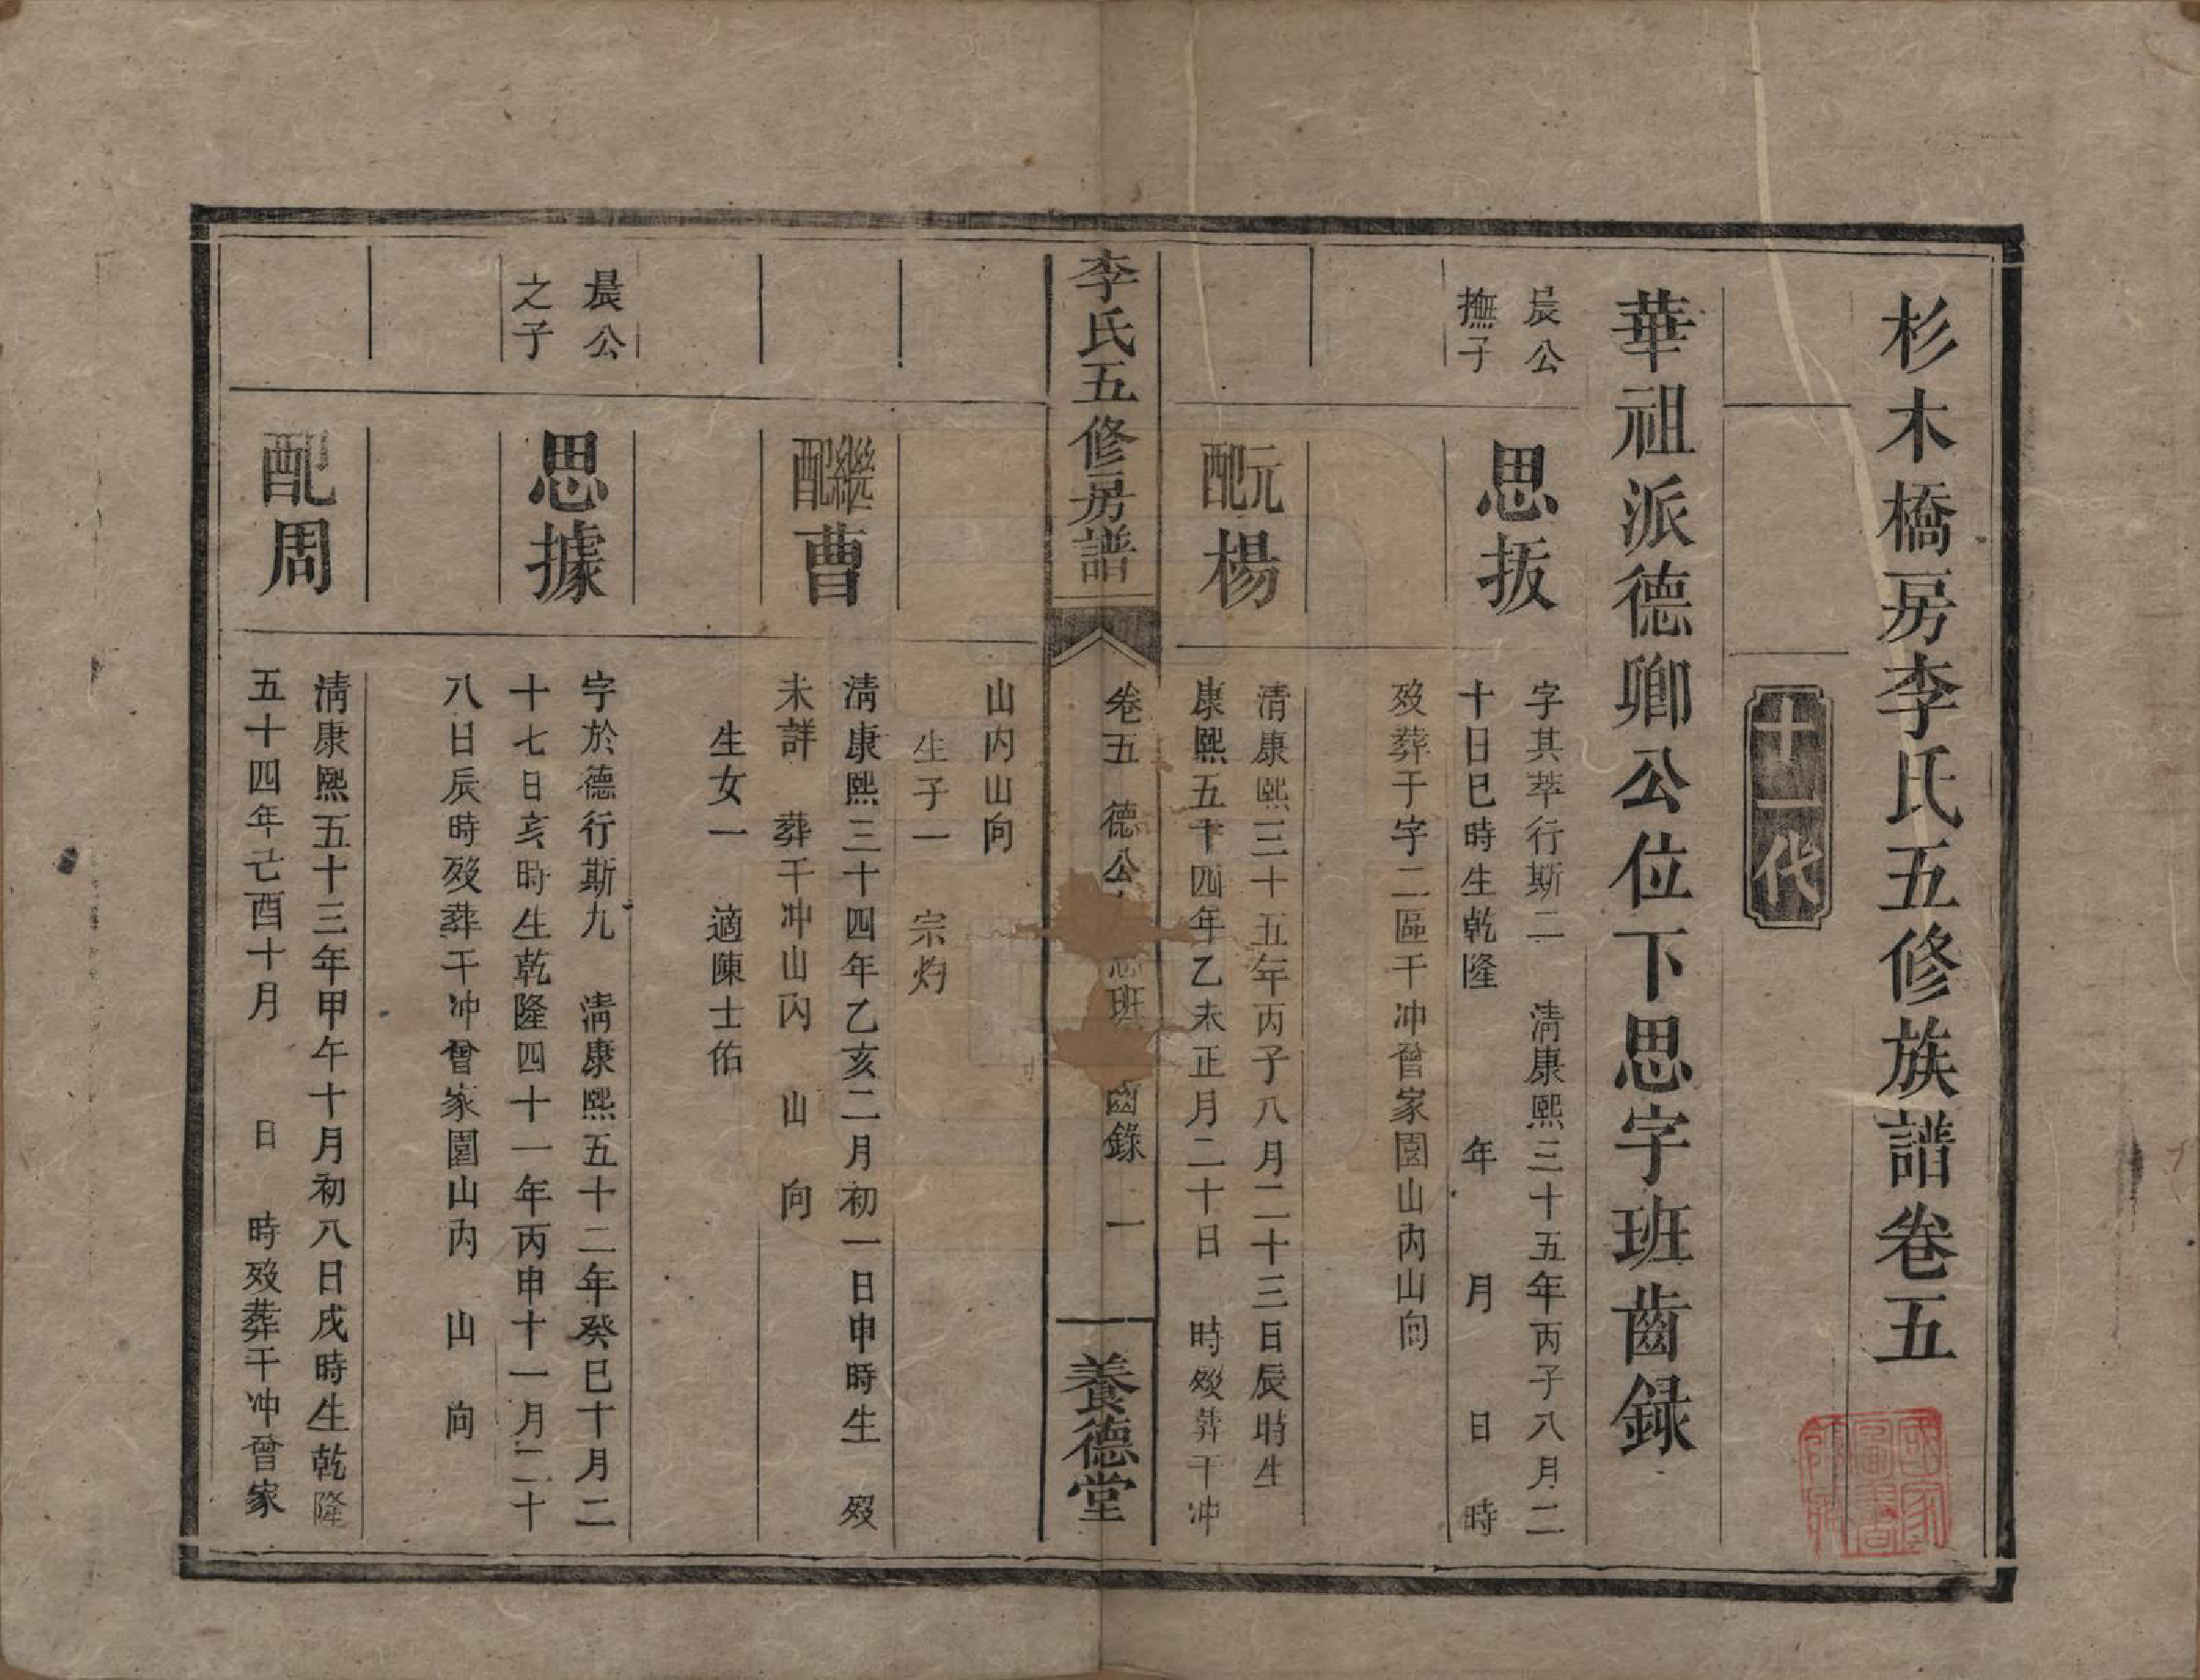 杉木橋房李氏五修族譜卷五
十一代
華祖派德卿公位下思字班齒錄
晨公
撫子
思拔
字其萃行斯二　清康熙三十五年丙子八月二
十日巳時生乾隆　年　月　日　時
歿葬于字二區干冲曾家園山內山向
元配楊
清康熙三十五年丙子八月二十三日辰時生
康熙五十四年乙未正月二十日　時歿葬干冲
李氏五修房譜
卷五　德公
班　齒錄　一
養德堂
山內山向
生子一　宗灼
繼配曹
清康熙三十四年乙亥二月初一日申時生　歿
未詳　葬干冲山內　山　向
生女一　適陳士佑
晨公
之子
思據
字於德行斯九　清康熙五十二年癸巳十月二
十七日亥時生乾隆四十一年丙申十一月二十
八日辰時歿葬干冲曾家園山內　山　向
配周
清康熙五十三年甲午十月初八日戌時生乾隆
五十四年己酉十月　日　時歿葬干冲曾家